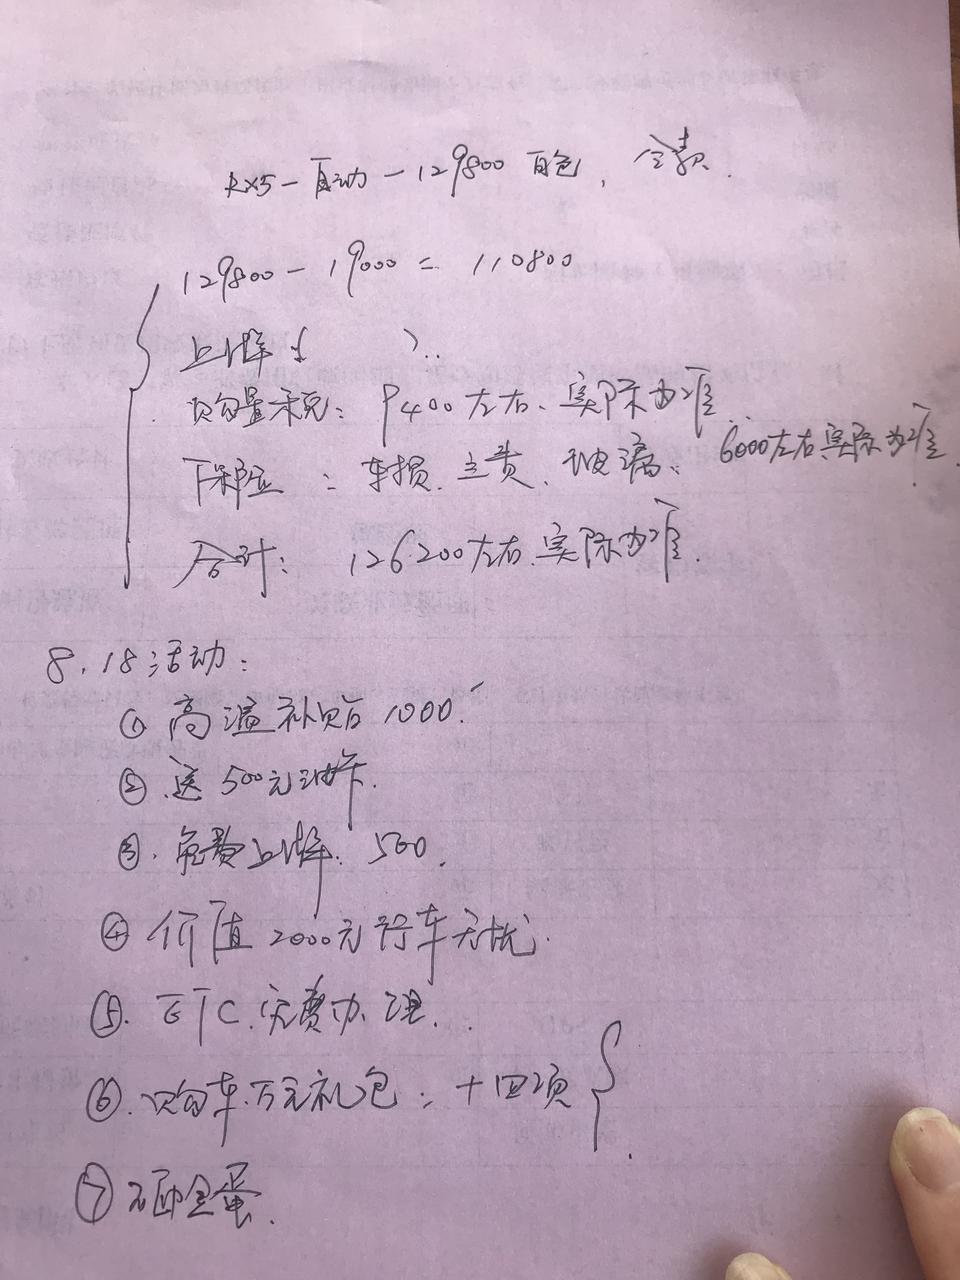 RX5-自动-129800 白色, 全款.
129800-19000=110800
上牌:
购置税: 9400左右、实际为准
下保险: 车损、三责、玻璃、6000左右实际为准
合计: 126200左右、实际为准.
8.18活动:
① 高温补贴1000.
② 送500元油卡.
③. 免费上牌: 500.
④ 价值2000元行车无忧.
⑤. ETC.免费办理.
⑥. 购车万元礼包: 十四项
⑦ 砸金蛋.